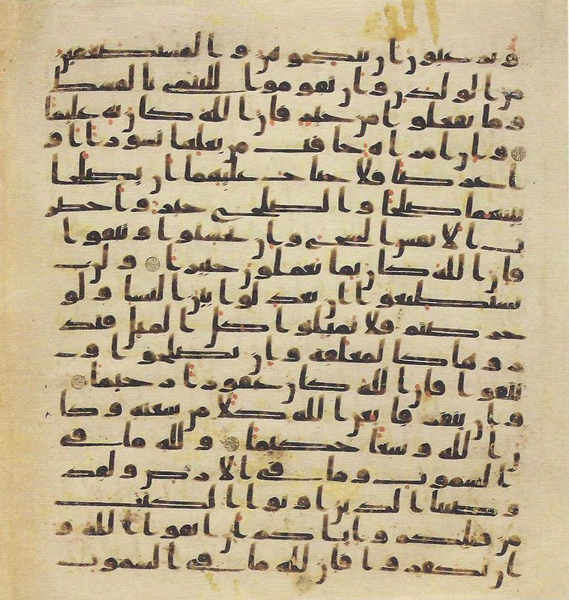 وترغبون ان تنكحوهن والمستضعفين
من الولدن وان تقوموا لليتمى بالقسط
وما تفعلوا من خير فان الله كان به عليما
وان امراة خافت من بعلها نشوزا او
اعراضا فلا جناح عليهما ان يصلحا
بينهما صلحا والصلح خير واحضر
ت الانفس الشح وان تحسنوا وتتقوا
فان الله كان بما تعملون خبيرا ولن
تستطيعوا ان تعدلوا بين النسا ولو
حرصتم فلا تميلوا كل الميل فتذ
روها كالمعلقة وان تصلحوا و
تتقوا فان الله كان غفورا رحيما
وان يتفرقا يغن الله كلا من سعته وكا
ن الله وسعا حكيما ولله ما في
السموت وما في الارض ولقد
وصينا الذين اوتوا الكتب
من قبلكم واياكم ان اتقوا الله و
ان تكفروا فان لله ما في السموت